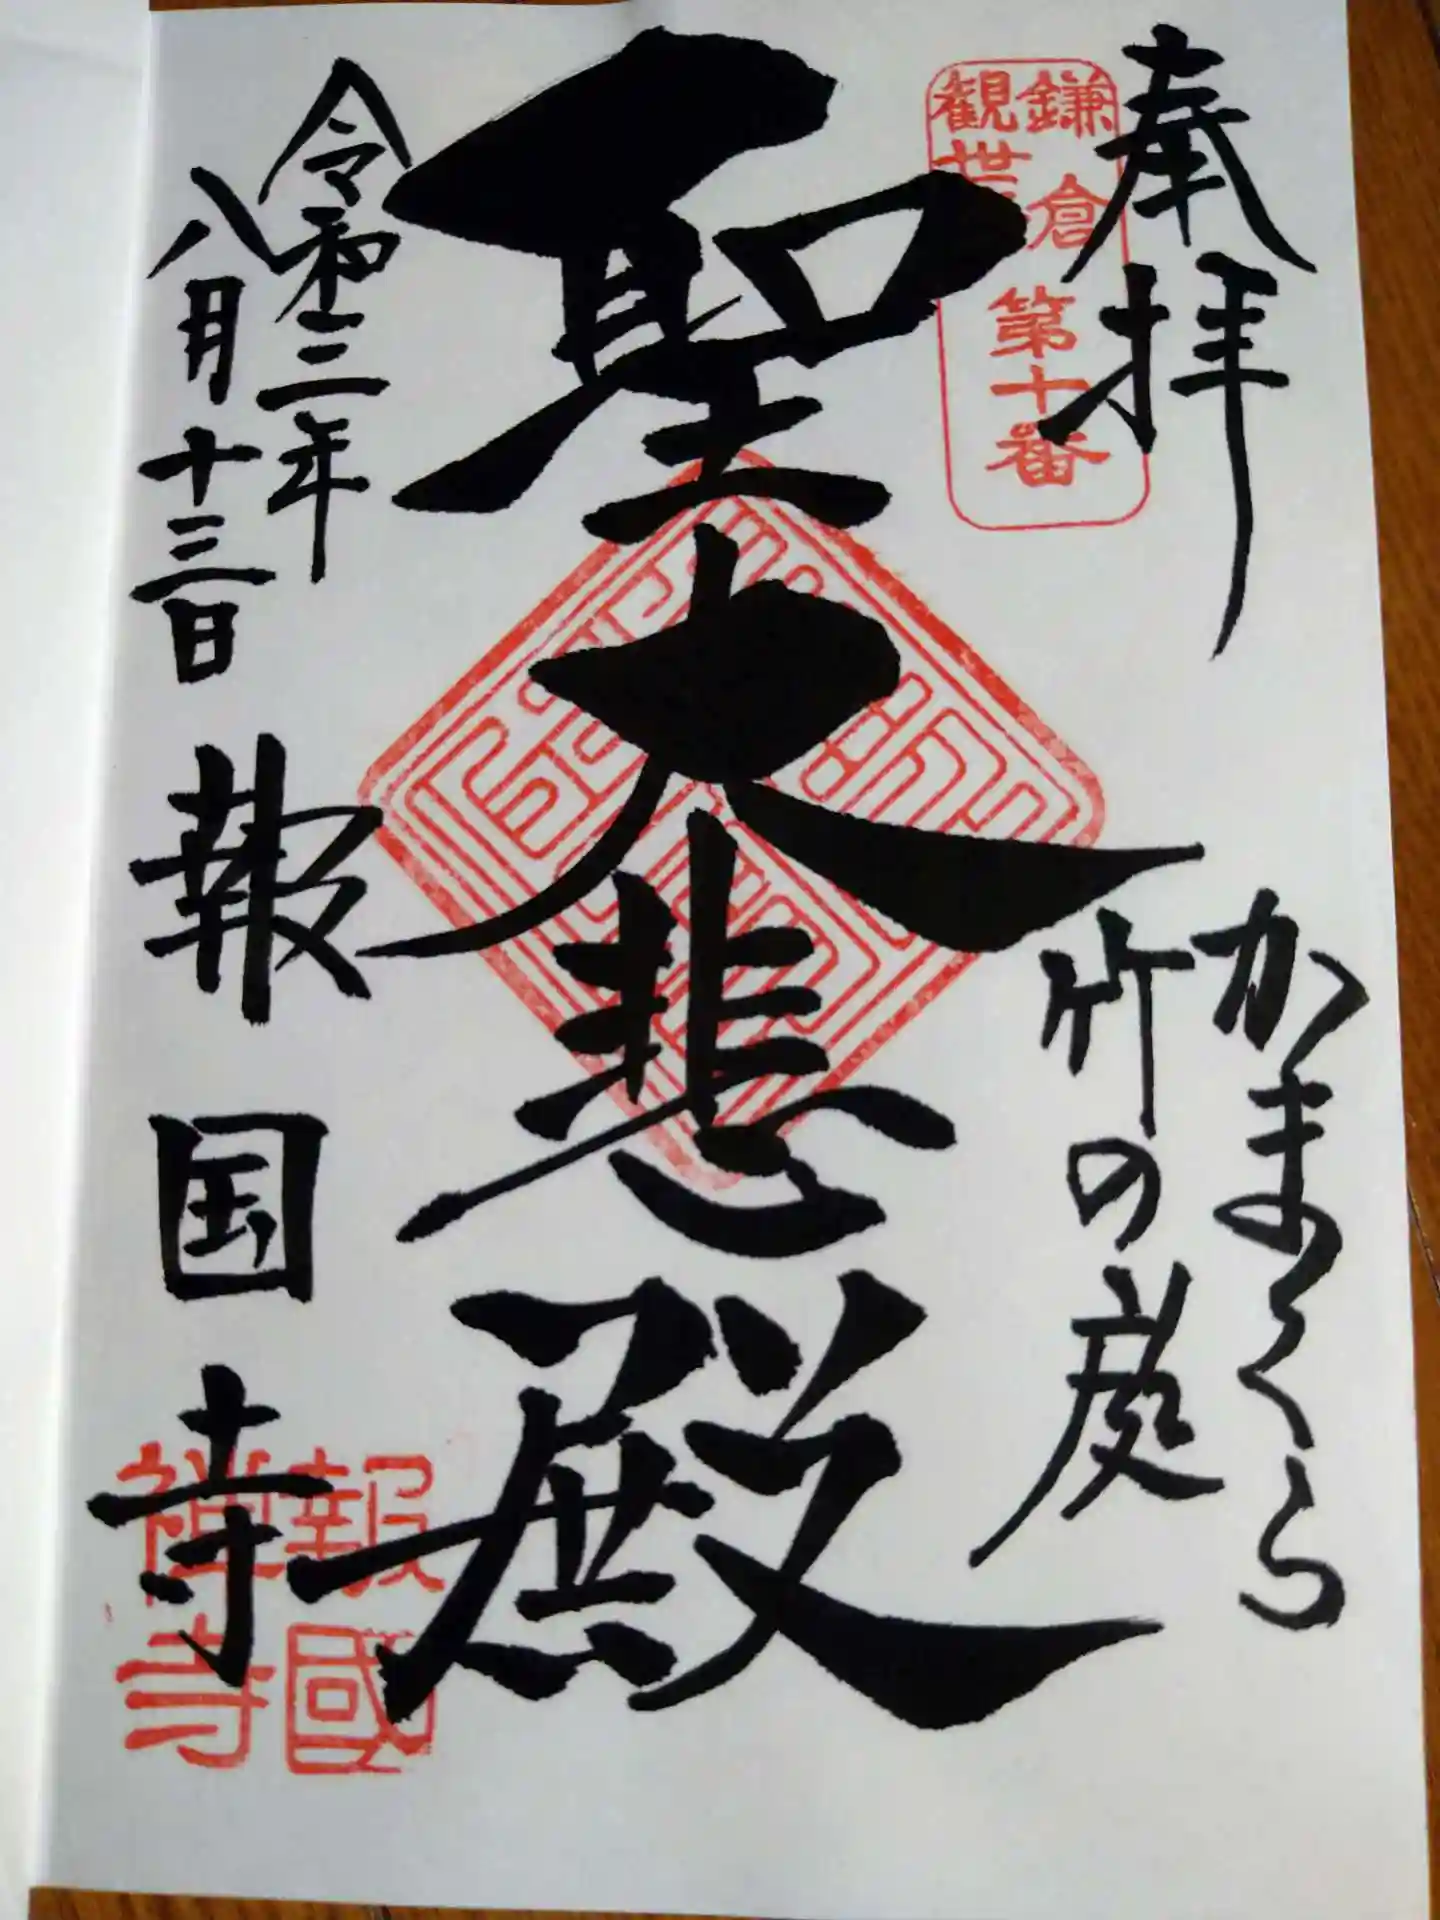 奉拝
鎌倉
観世
第十番
かまくら
竹の庭
聖大悲殿
令和二年
八月十三日
報国寺
報國
禅寺